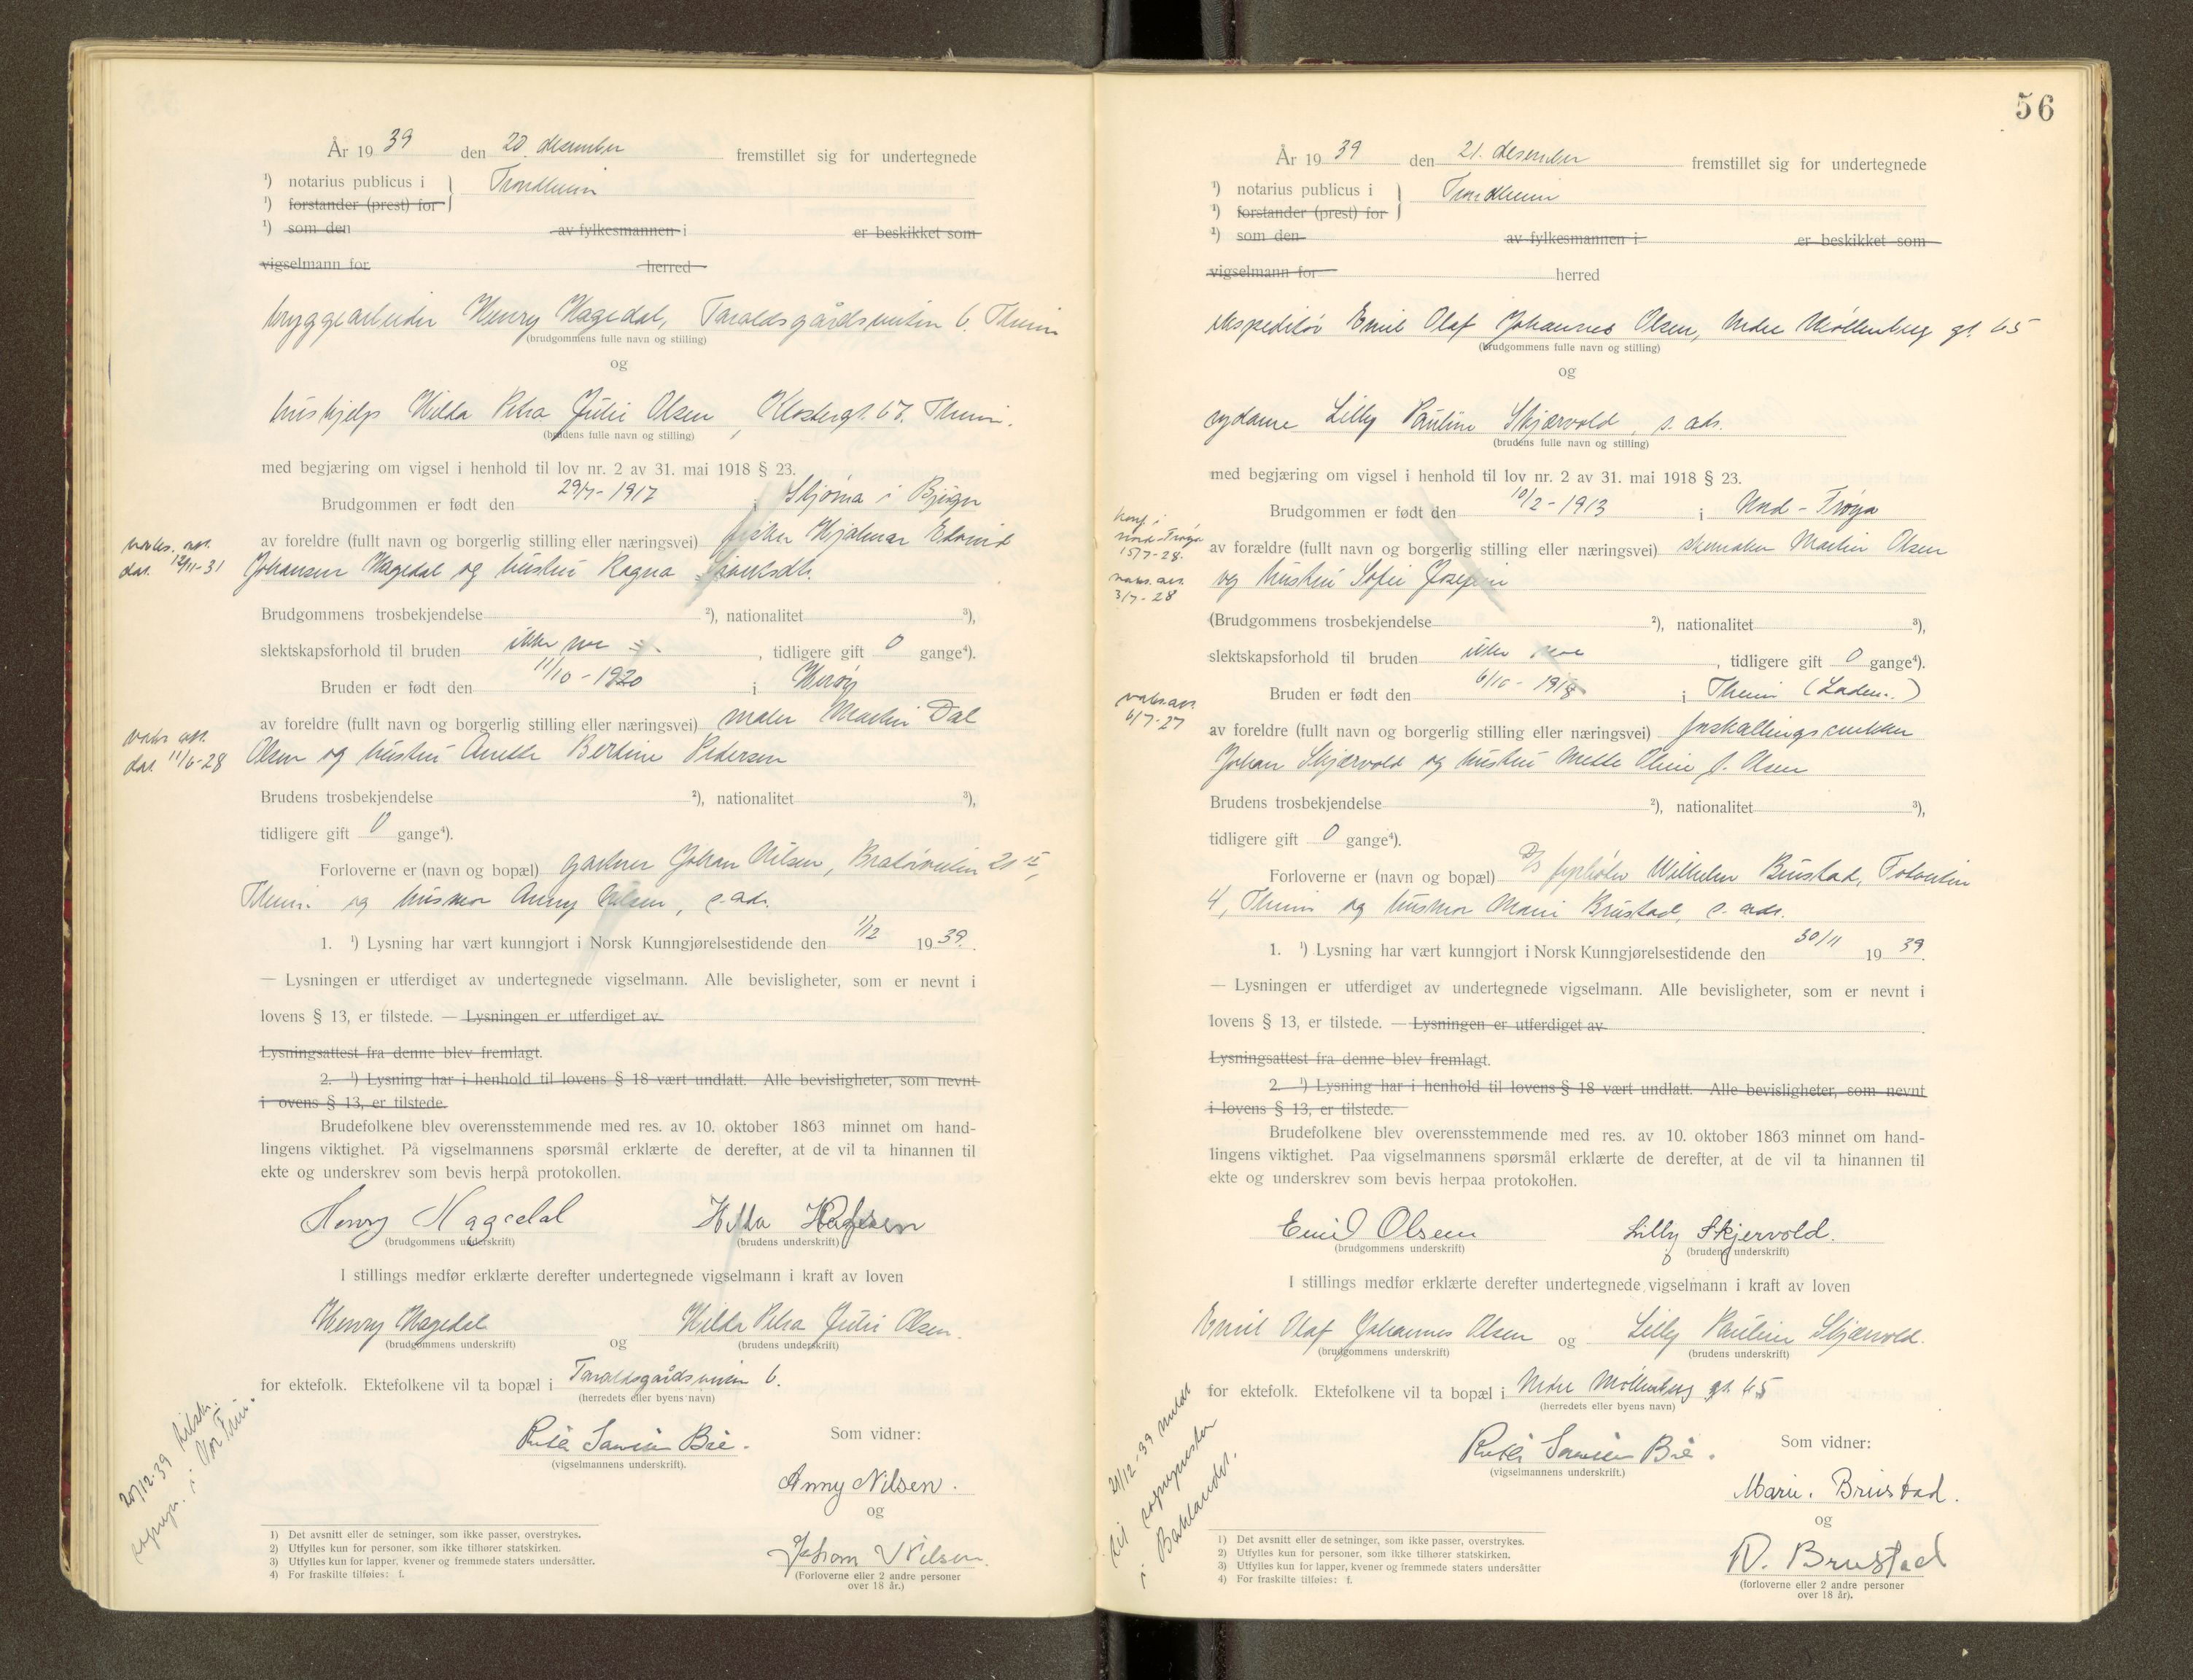 År 19 39 den 20. desember fremstillet sig for undertegnede
¹) notarius publicus i } Trondheim
¹) forstander (prest) for
¹) som den av fylkesmannen i er beskikket som
vigselmann for herred
bryggearbeider Henry Hagedal, Taraldsgårdsveien 6. Theim
(brudgommens fulle navn og stilling)
og
hushjelp Hilda Petra Julie Olsen, Klostergt. 67. Theim.
(brudens fulle navn og stilling)
med begjæring om vigsel i henhold til lov nr. 2 av 31. mai 1918 § 23.
Brudgommen er født den 29/7-1917 i i Bjugn
av foreldre (fullt navn og borgerlig stilling eller næringsvei) fisker Hjalmar Edvind
vaks. att.
dat. 12/11-31
Johansen Hagedal og hustru Ragna
Brudgommens trosbekjendelse ²), nationalitet ³),
slektskapsforhold til bruden ikke noe, tidligere gift 0 gange⁴).
Bruden er født den 11/10-1920 i Herøy
av foreldre (fullt navn og borgerlig stilling eller næringsvei) maler Martin Dal
vaks att.
dat. 11/6-28
Olsen og hustru Anette Bertine Pedersen
Brudens trosbekjendelse ²), nationalitet ³),
tidligere gift 0 gange⁴).
Forloverne er (navn og bopæl) gartner Johan Nilsen, Bratsbergveien 20
Theim. og husmor Anny Nilsen, s. adr.
1. ¹) Lysning har vært kunngjort i Norsk Kunngjørelsestidende den 1/12 19 39.
— Lysningen er utferdiget av undertegnede vigselmann. Alle bevisligheter, som er nevnt i
lovens § 13, er tilstede. — Lysningen er utferdiget av
Lysningsattest fra denne blev fremlagt.
2. ¹) Lysning har i henhold til lovens § 18 vært undlatt. Alle bevisligheter, som nevnt
i ovens § 13, er tilstede.
Brudefolkene blev overensstemmende med res. av 10. oktober 1863 minnet om hand-
lingens viktighet. På vigselmannens spørsmål erklærte de derefter, at de vil ta hinannen til
ekte og underskrev som bevis herpå protokollen.
Henry Hagedal Hilda
(brudgommens underskrift) (brudens underskrift)
I stillings medfør erklærte derefter undertegnede vigselmann i kraft av loven
Henry Hagedal og Hilda Petra Julie Olsen.
(brudgommens underskrift) (brudens underskrift)
for ektefolk. Ektefolkene vil ta bopæl i Taraldsgårdsveien 6.
(herredets eller byens navn)
20/12-39 tilsk.
sogнepr. i Vor Frue.
Bie.
(vigselmannens underskrift).
Som vidner:
Anny Nilsen.
og
Johan Nilsen.
(Forloverne eller 2 andre personer
over 18 år.)
1) Det avsnitt eller de setninger, som ikke passer, overstrykes.
2) Utfylles kun for personer, som ikke tilhører statskirken.
3) Utfylles kun for lapper, kvener og fremmede staters undersåtter.
4) For fraskilte tilføies: f.
56
År 19 39 den 21. desember fremstillet sig for undertegnede
¹) notarius publicus i } Trondheim
¹) forstander (prest) for
¹) som den av fylkesmannen i er beskikket som
vigselmann for herred
ekspeditør Emil Olaf Johannes Olsen, nedre Møllenberg gt. 65
(brudgommens fulle navn og stilling)
og
sydame Lilly Pauline Skjærvold, s. adr.
(brudens fulle navn og stilling)
med begjæring om vigsel i henhold til lov nr. 2 av 31. mai 1918 § 23.
Brudgommen er født den 10/2-1913 i Nord-Frøya
konf. i
Nord-Frøya
15/7-28.
vaks. att.
3/7-28
av forældre (fullt navn og borgerlig stilling eller næringsvei) skomaker Martin Olsen
og hustru Sofie Josefine
(Brudgommens trosbekjendelse ²), nationalitet ³),
slektskapsforhold til bruden ikke noe, tidligere gift 0 gange⁴).
Bruden er født den 6/10-1918 i Theim (Laden.)
vaks. att.
6/7-27
av foreldre (fullt navn og borgerlig stilling eller næringsvei) forskallingssnekker
Johan Skjærvold og hustru Mette Oline f. Olsen
Brudens trosbekjendelse ²), nationalitet ³),
tidligere gift 0 gange⁴).
Forloverne er (navn og bopæl) D/S fyrbøter Wilhelm Brustad,
4, Theim og husmor Marie Brustad, s. adr.
1. ¹) Lysning har vært kunngjort i Norsk Kunngjørelsestidende den 30/11 19 39.
— Lysningen er utferdiget av undertegnede vigselmann. Alle bevisligheter, som er nevnt i
lovens § 13, er tilstede. — Lysningen er utferdiget av
Lysningsattest fra denne blev fremlagt.
2. ¹) Lysning har i henhold til lovens § 18 vært undlatt. Alle bevisligheter, som nevnt
i lovens § 13, er tilstede.
Brudefolkene blev overensstemmende med res. av 10. oktober 1863 minnet om hand-
lingens viktighet. Paa vigselmannens spørsmål erklærte de derefter, at de vil ta hinannen til
ekte og underskrev som bevis herpaa protokollen.
Emil Olsen Lilly Skjervold.
(brudgommens underskrift) (brudens underskrift)
I stillings medfør erklærte derefter undertegnede vigselmann i kraft av loven
Emil Olaf Johannes Olsen og Lilly Pauline Skjærvold.
(brudgommens underskrift) (brudens underskrift)
for ektefolk. Ektefolkene vil ta bopæl i Nedre Møllenberg gt. 65
(herredets eller byens navn)
21/12-39 meldt
til sognepresten
i Bakklandet.
Bie.
(vigselmannens underskrift.)
Som vidner:
Marie. Brustad.
og
W. Brustad
(forloverne eller 2 andre personer
over 18 år).
1) Det avsnitt eller de setninger, som ikke passer, overstrykes.
2) Utfylles kun for personer, som ikke tilhører statskirken.
3) Utfylles kun for lapper, kvener og fremmede staters undersåtter
4) For fraskilte tilføies: f.